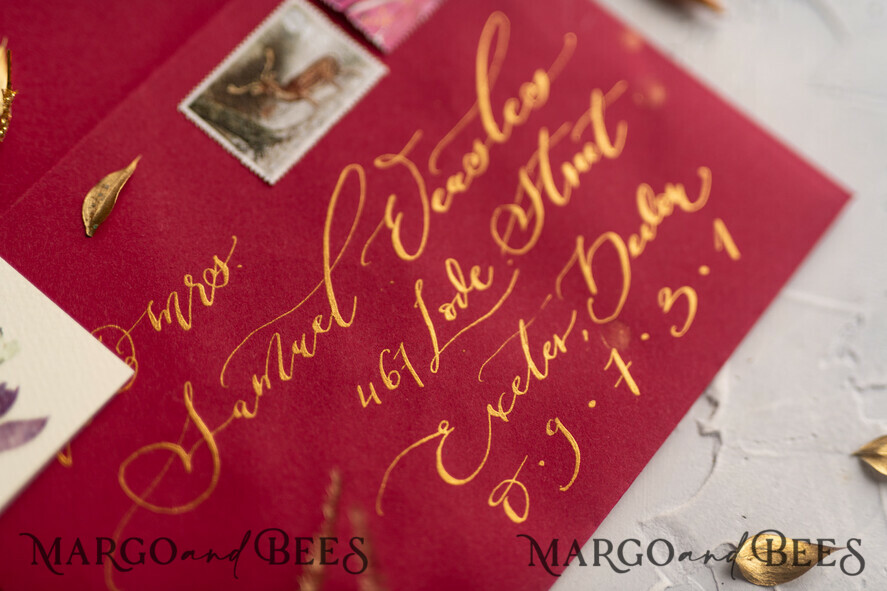 & mrs.
Samuel Deasley
467 Lode Street
Exeter, Dedor
8.9.7.3.1
MARGO and BEES
MARGO and BEES